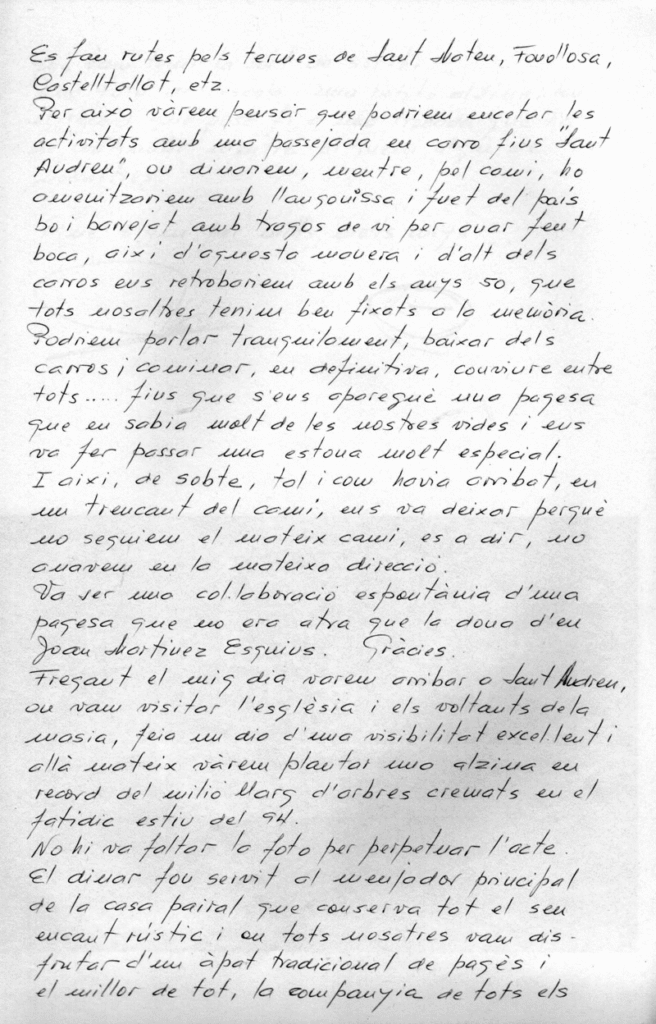 Es fan rutes pels termes de Sant Mateu, Fonollosa,
Castelltallat, etz.
Per això vàrem pensar que podriem encetar les
activitats amb una passejada en carro fins "Sant
Andreu", on dinariem, mentre, pel camí, ho
amenitzariem amb llangouissa i fuet del país
bo i barrejat amb tragos de vi per anar fent
boca, així d'aquesta manera i d'alt dels
carros ens retrobariem amb els anys 50, que
tots nosaltres tenim ben fixats a la memòria.
Podriem parlar tranquilament, baixar dels
carros i caminar, en definitiva, conviure entre
tots..... fins que s'ens aparegué una pagesa
que en sabia molt de les nostres vides i ens
va fer passar una estona molt especial.
I aixi, de sobte, tal i com havia arribat, en
un trencant del camí, ens va deixar perquè
no seguiem el mateix cami, es a dir, no
anavem en la mateixa direcció.
Va ser una col.laboració espontània d'una
pagesa que no era atra que la dona d'en
Joan Martinez Esquius. Gràcies.
Fregant el mig dia varem arribar a Sant Andreu,
on vam visitar l'església i els voltants de la
masia, feia un dia d'una visibilitat excel.lent i
allà mateix vàrem plantar una alzina en
record del milió llarg d'arbres cremats en el
fatídic estiu del 94.
No hi va faltar la foto per perpetuar l'acte.
El dinar fou servit al menjador principal
de la casa pairal que conserva tot el seu
encant rústic i on tots nosatres vam dis-
frutar d'un àpat tradicional de pagès i
el millor de tot, la companyia de tots els